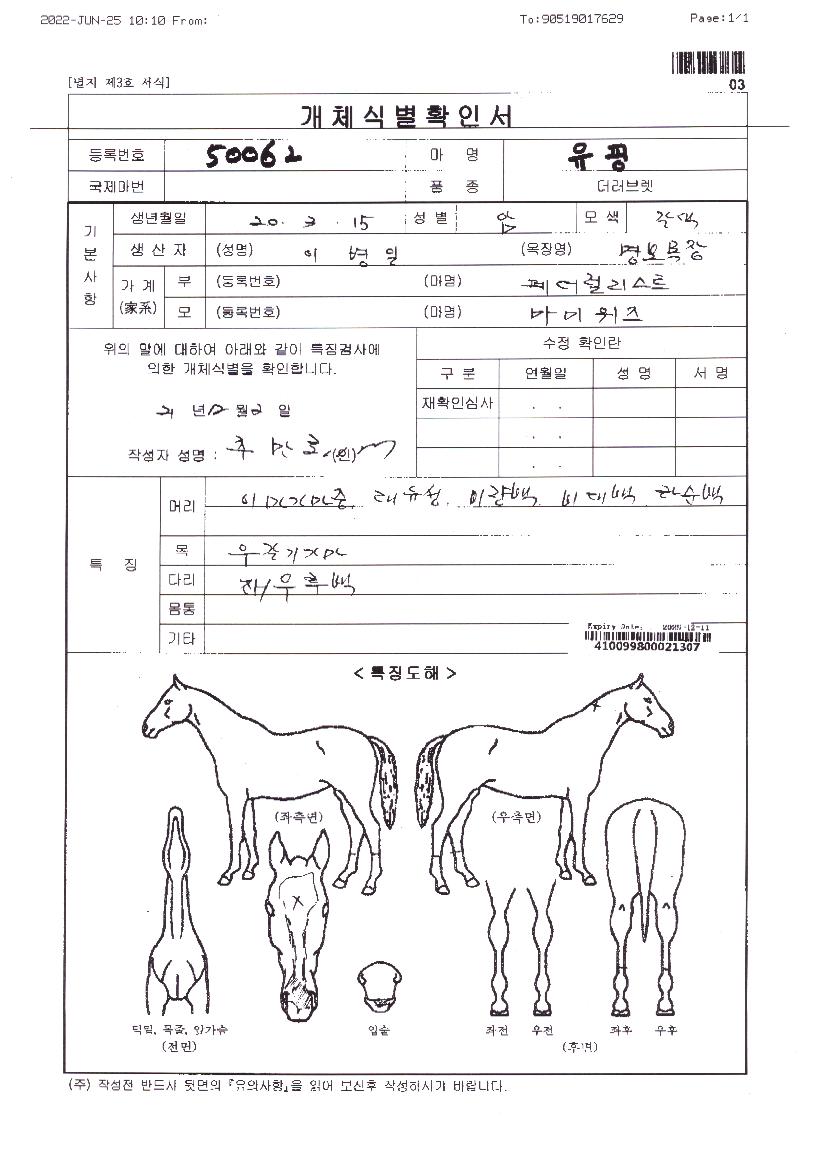 2022-JUN-25 10:10 From: To:90519017629 Page:1/1
03
[별지 제3호 서식]
개체식별확인서
등록번호 50062 마 명 유핑
국제마번 품 종 더러브렛
기본사항
생년월일 20. 3. 15 성별 암 모색 갈색
생산자 (성명) 이병일 (목장명) 명보목장
가계 (家系) 부 (등록번호) (마명) 페더럴리스트
모 (등록번호) (마명) 마미위즈
위의 말에 대하여 아래와 같이 특징검사에
의한 개체식별을 확인합니다.
21 년 12 월 2 일
작성자 성명 : (인)
수정 확인란
구 분 연월일 성 명 서 명
재확인심사 . .
. .
. .
특 징
머리
목
다리 좌/우후백
몸통
기타
Expiry Date:
410099800021307
< 특징도해 >
(좌측면) (우측면)
턱밑, 목줄, 앞가슴 입술 좌전 우전 좌후 우후
(전면) (후면)
(주) 작성전 반드시 뒷면의 『유의사항』을 읽어 보신후 작성하시기 바랍니다.